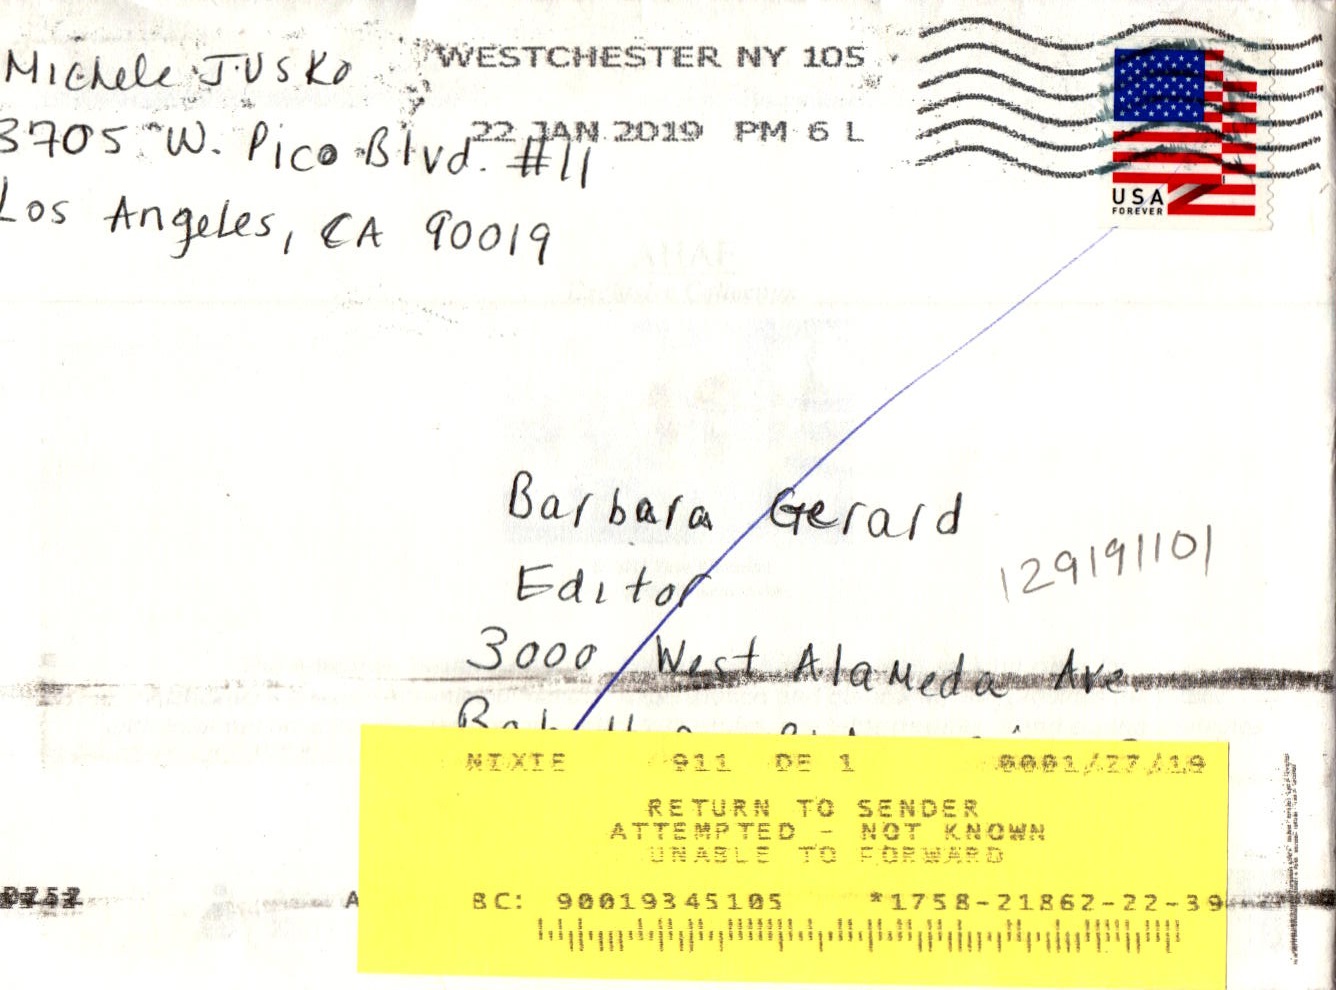 Michele JUSKO
3705 W. Pico Blvd. #11
Los Angeles, CA 90019
WESTCHESTER NY 105
22 JAN 2019 PM 6 L
USA
FOREVER
Barbara Gerard
Editor
129191101
3000 West Alameda Ave.
NIXIE 911 DE 1 0001/27/19
RETURN TO SENDER
ATTEMPTED - NOT KNOWN
UNABLE TO FORWARD
BC: 90019345105 *1758-21862-22-39
A